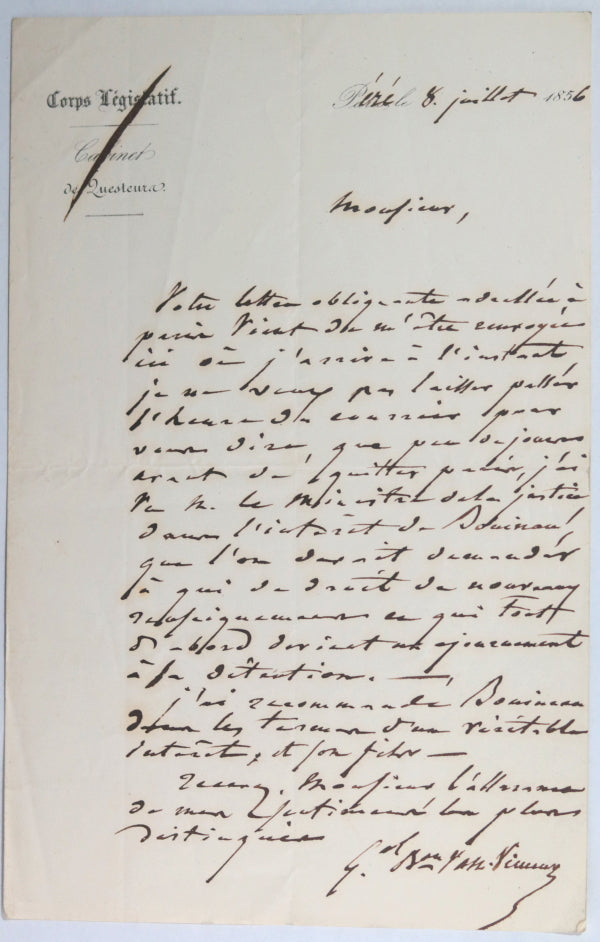 Corps Législatif.
Cabinet
de Questeurs.
Péré le 8. juillet 1856
Monsieur,
Votre lettre obligeante adressée à
paris vient de m'être renvoyée
ici où j'arrive à l'instant
je ne veux pas laisser passer
l'heure du courrier pour
vous dire, que peu de jours
avant de quitter paris, j'ai
vu M. le Ministre de la justice
dans l'intérêt de Bouineau,
que l'on devait demander
à qui de droit de nouveaux
renseignements ce qui tout
d'abord devient un ajournement
à sa détention. —
j'ai recommandé Bouineau
dans les termes d'un véritable
intérêt, et son frère —
recevez, Monsieur l'assurance
de mes sentiments les plus
distingués
G.al B.on